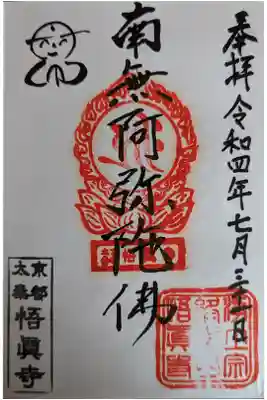 奉拝 令和四年七月三十一日
南無阿弥陀佛
京都
太秦
悟眞寺